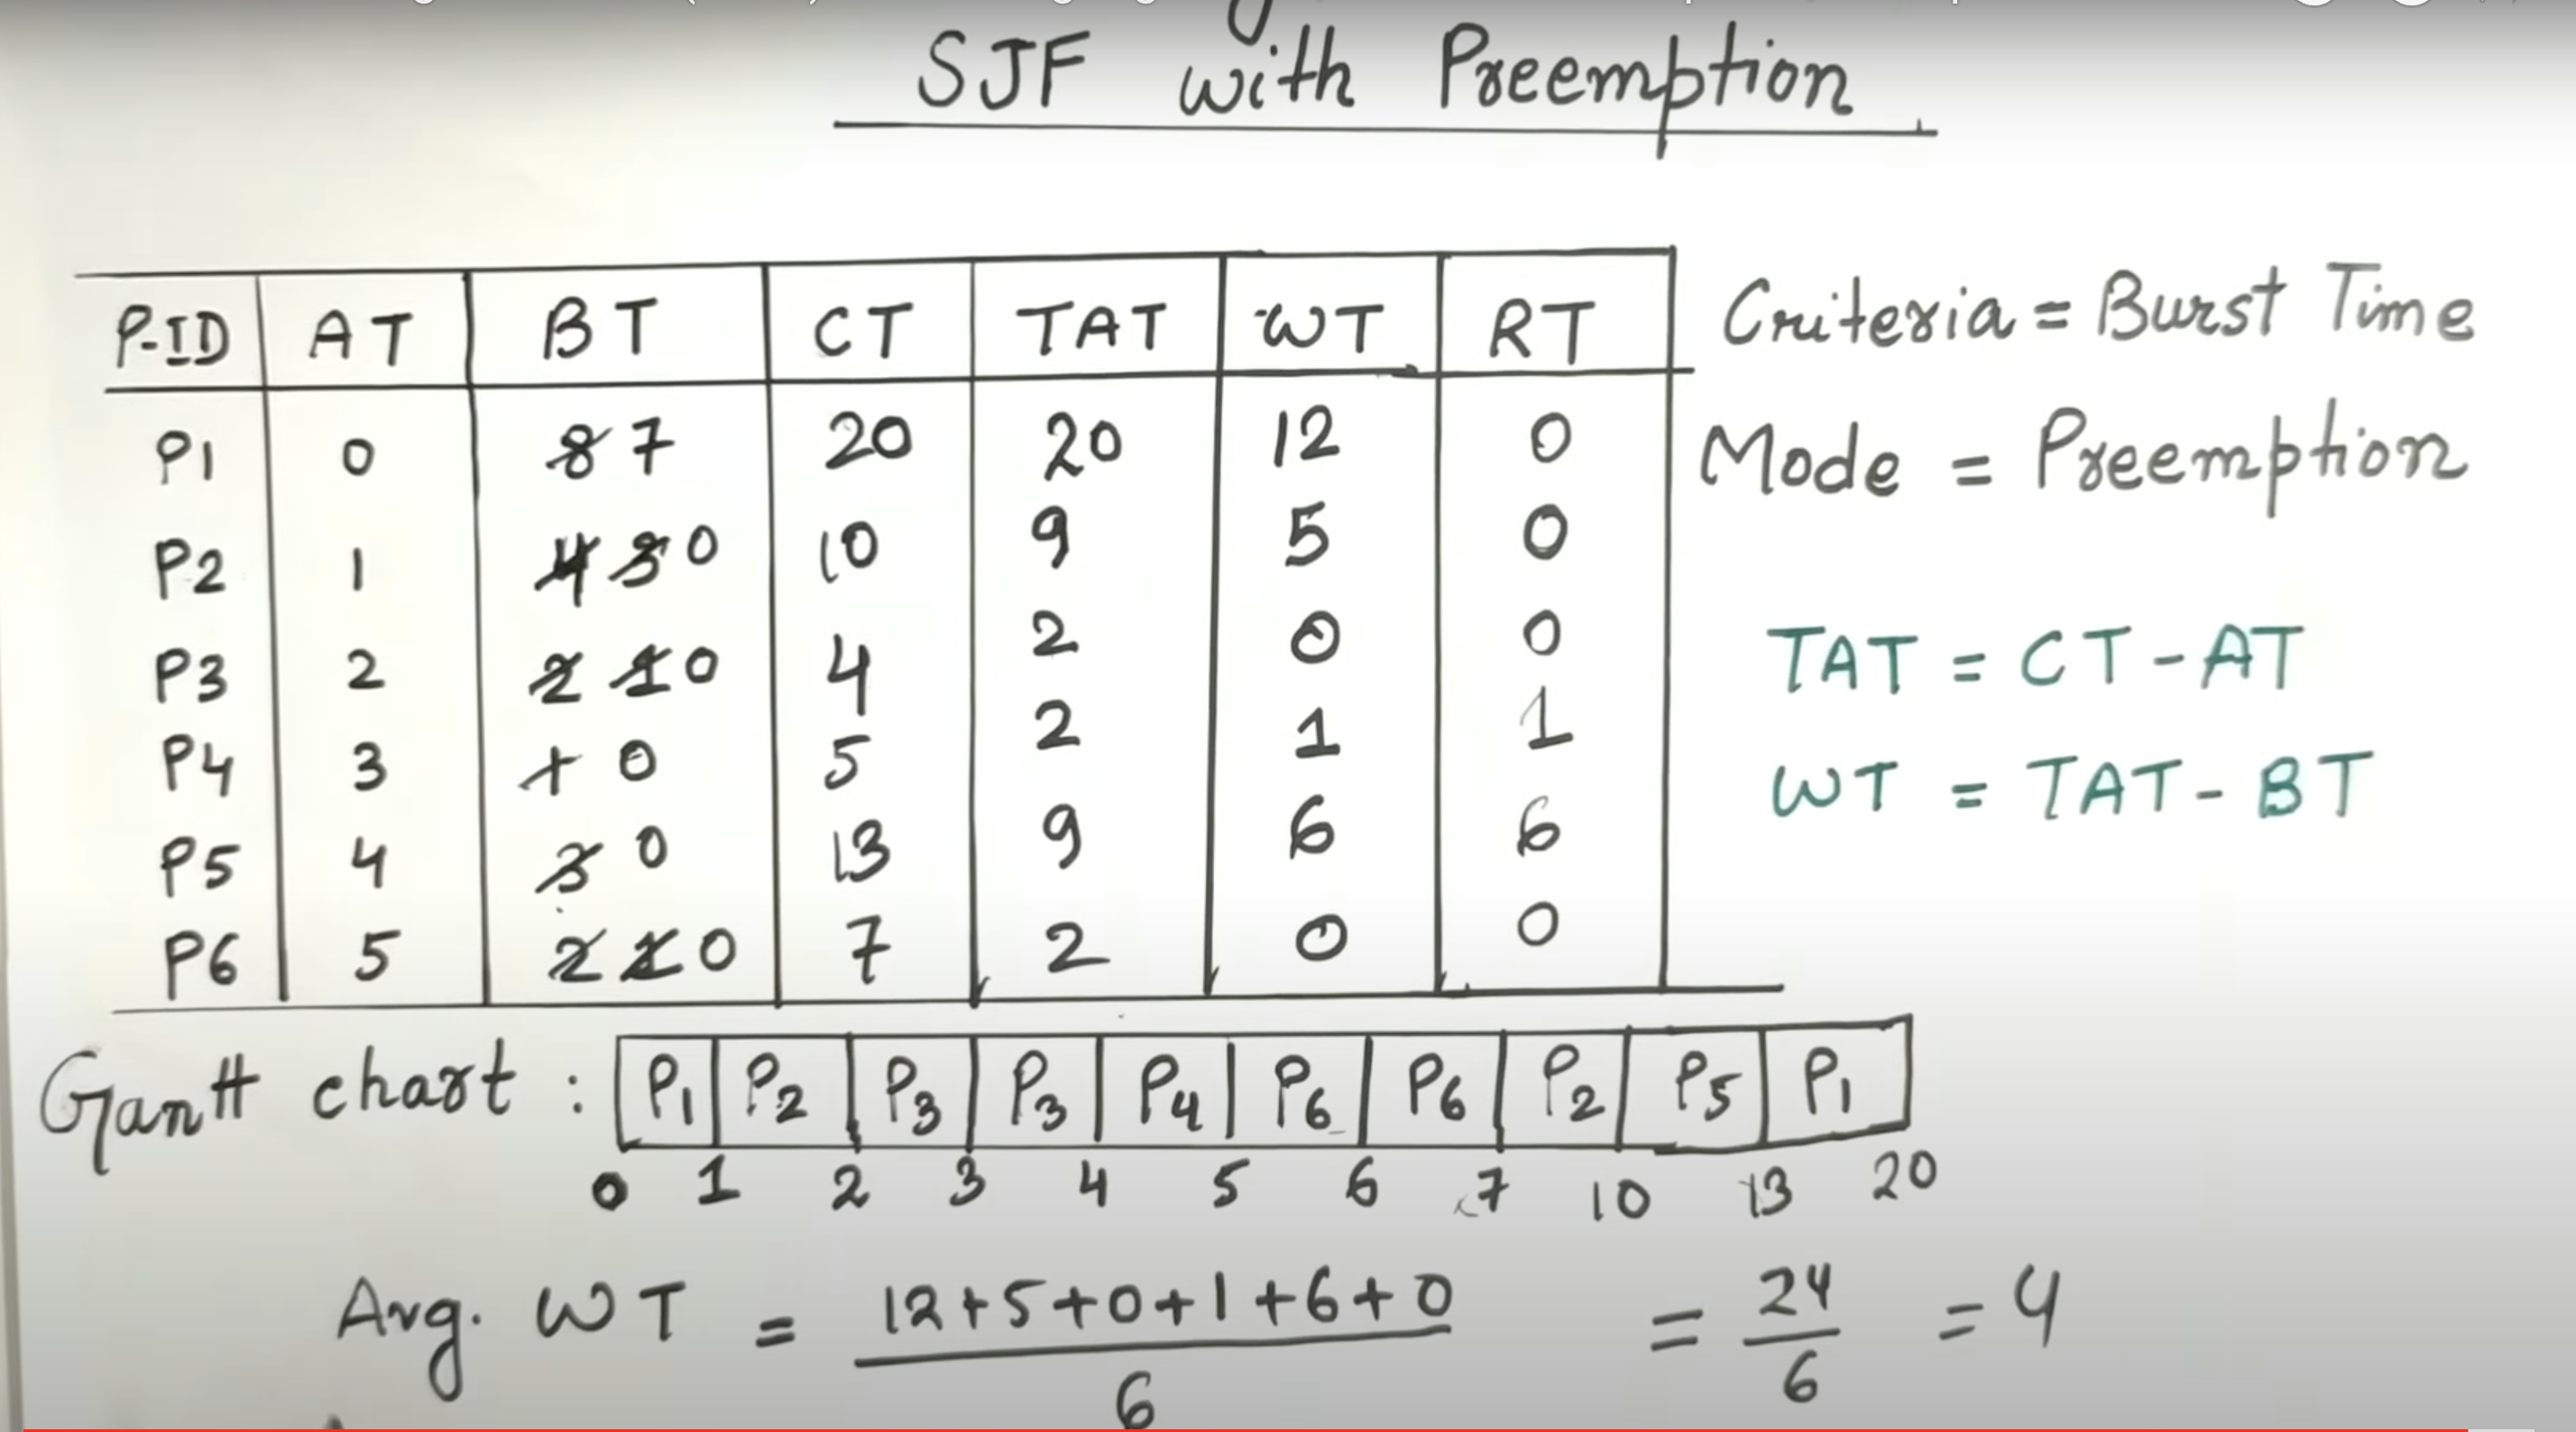 SJF with Preemption
P-ID AT BT CT TAT WT RT
P1 0 8 7 20 20 12 0
P2 1 4 3 0 10 9 5 0
P3 2 2 1 0 4 2 0 0
P4 3 1 0 5 2 1 1
P5 4 3 0 13 9 6 6
P6 5 2 1 0 7 2 0 0
Criteria = Burst Time
Mode = Preemption
TAT = CT - AT
WT = TAT - BT
Gantt chart : P1 P2 P3 P3 P4 P6 P6 P2 P5 P1
0 1 2 3 4 5 6 7 10 13 20
Avg. WT = 12+5+0+1+6+0 / 6 = 24 / 6 = 4